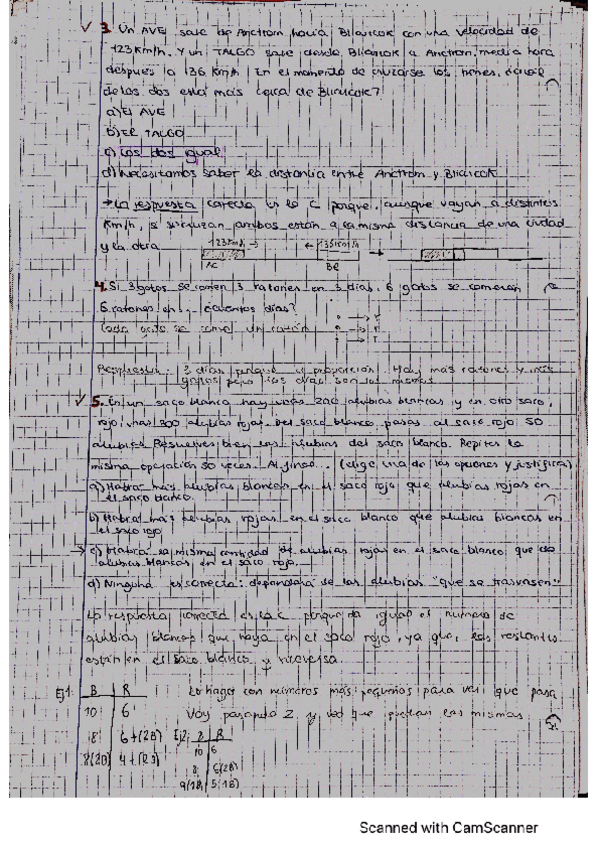 3. Un AVE sale de Anctrom, hacia Bliaucok con una velocidad de
123Km/h. Y un TALGO sale desde Bliaucok a Anctrom, media hora
después a 136 Km/h. En el momento de cruzarse los trenes, ¿cuál
de los dos está más cerca de Bliaucok?
a) El AVE
b) El TALGO
c) Los dos igual
d) Necesitamos saber la distancia entre Anctrom y Bliaucok
→ La respuesta correcta es la C porque, aunque vayan a distintos
Km/h, si se cruzan ambos están a la misma distancia de una ciudad
y la otra. 123Km/h →
4. Si 3 gatos se comen 3 ratones en 3 días. 6 gatos se comerán
6 ratones en... ¿cuántos días?
Cada gato se come un ratón
3 días porque es proporcional. Hay más ratones y más
gatos pero los días son los mismos
5. En un saco blanco hay unas 200 alubias blancas y en otro saco,
rojo, unas 300 alubias rojas. Del saco blanco, pasas al saco rojo 50
alubias. bien las alubias del saco blanco. Repites la
misma operación 50 veces. Al final... (elige una de las opciones y justifica)
a) Habrá más alubias blancas en el saco rojo que alubias rojas en
el saco blanco.
b) Habrá más alubias rojas en el saco blanco que alubias blancas en
el saco rojo
→ c) Habrá la misma cantidad de alubias rojas en el saco blanco que de
alubias blancas en el saco rojo.
d) Ninguna es correcta: dependerá de las alubias "que se trasvasen"
La respuesta correcta es la C porque da igual el número de
alubias blancas que haya en el saco rojo, ya que, las restantes
están en el saco blanco y viceversa.
Ej1: B R Lo hago con números más pequeños para ver que pasa
10 6 Voy pasando 2 y veo que quedan las mismas
8 6+(2B) Ej2: B R
8(2B) 4+(2B) 10 6
8 6(2B)
9(1B) 5(1B)
Scanned with CamScanner